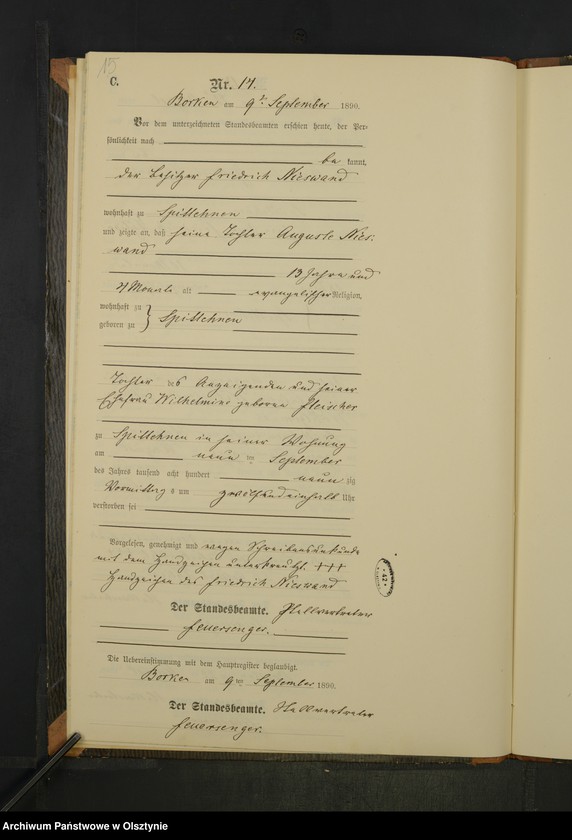 15
C.
Nr. 14.
Borken am 9t September 1890.
Vor dem unterzeichneten Standesbeamten erschien heute, der Per-
sönlichkeit nach
be kannt,
der Besitzer Friedrich Nieswand
wohnhaft zu Spittehnen
und zeigte an, daß seine Tochter Auguste Nies-
wand
13 Jahre und
Monate alt evangelischer Religion,
wohnhaft zu
geboren zu Spittehnen
Tochter des Anzeigenden und seiner
Ehefrau Wilhelmine geborene Fleischer
zu Spittehnen in seiner Wohnung
am neun ten September
des Jahres tausend acht hundert neun zig
Vormittags um Uhr
verstorben sei
Vorgelesen, genehmigt und wegen Schreibensunkunde
mit dem Handzeichen unterkreuzt. +++
Handzeichen des Friedrich Nieswand
42
Der Standesbeamte. Stellvertreter
Feuersenger.
Die Uebereinstimmung mit dem Hauptregister beglaubigt.
Borken am 9ten September 1890.
Der Standesbeamte. Stellvertreter
Feuersenger.
Archiwum Państwowe w Olsztynie